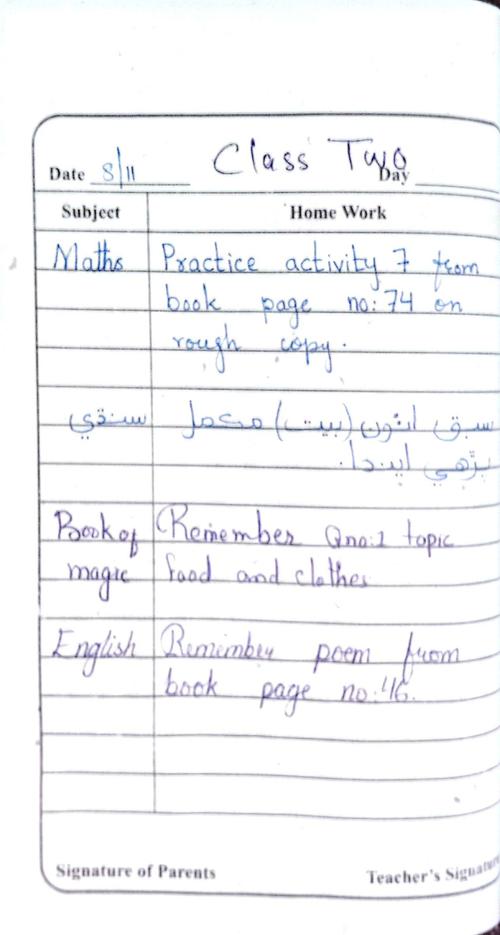 Class Two
Date 8/11 Day
Subject Home Work
Maths Practice activity 7 from
book page no: 74 on
rough copy.
سنڌي سبق اٺون (بيت) مڪمل
پڙهي ايندا.
Book of Remember Qno:1 topic
magic food and clothes
English Remember poem from
book page no: 46.
Signature of Parents Teacher's Signature